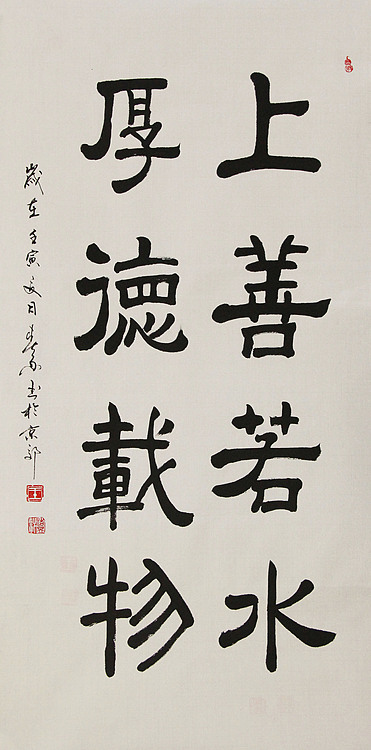 上善若水
厚德載物
歲在壬寅夏日书於京郊